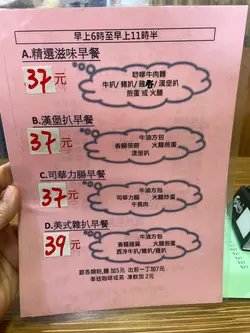 早上6時至早上11時半
A.精選滋味早餐
37元
沙嗲牛肉麵
牛扒/豬扒/雞扒/漢堡扒
煎蛋 或 火腿
B.漢堡扒早餐
37元
牛油方包
香腸 火腿煎蛋
漢堡扒
C.司華力腸早餐
37元
牛油方包
司華力腸 火腿炒蛋
午餐肉
D.美式雜扒早餐
39元
牛油方包
香腸 火腿煎蛋
西冷牛扒/豬扒/雞扒
跟各類粉,麵 加5元 出前一丁加7元
奉送咖啡或茶 凍飲加 2元